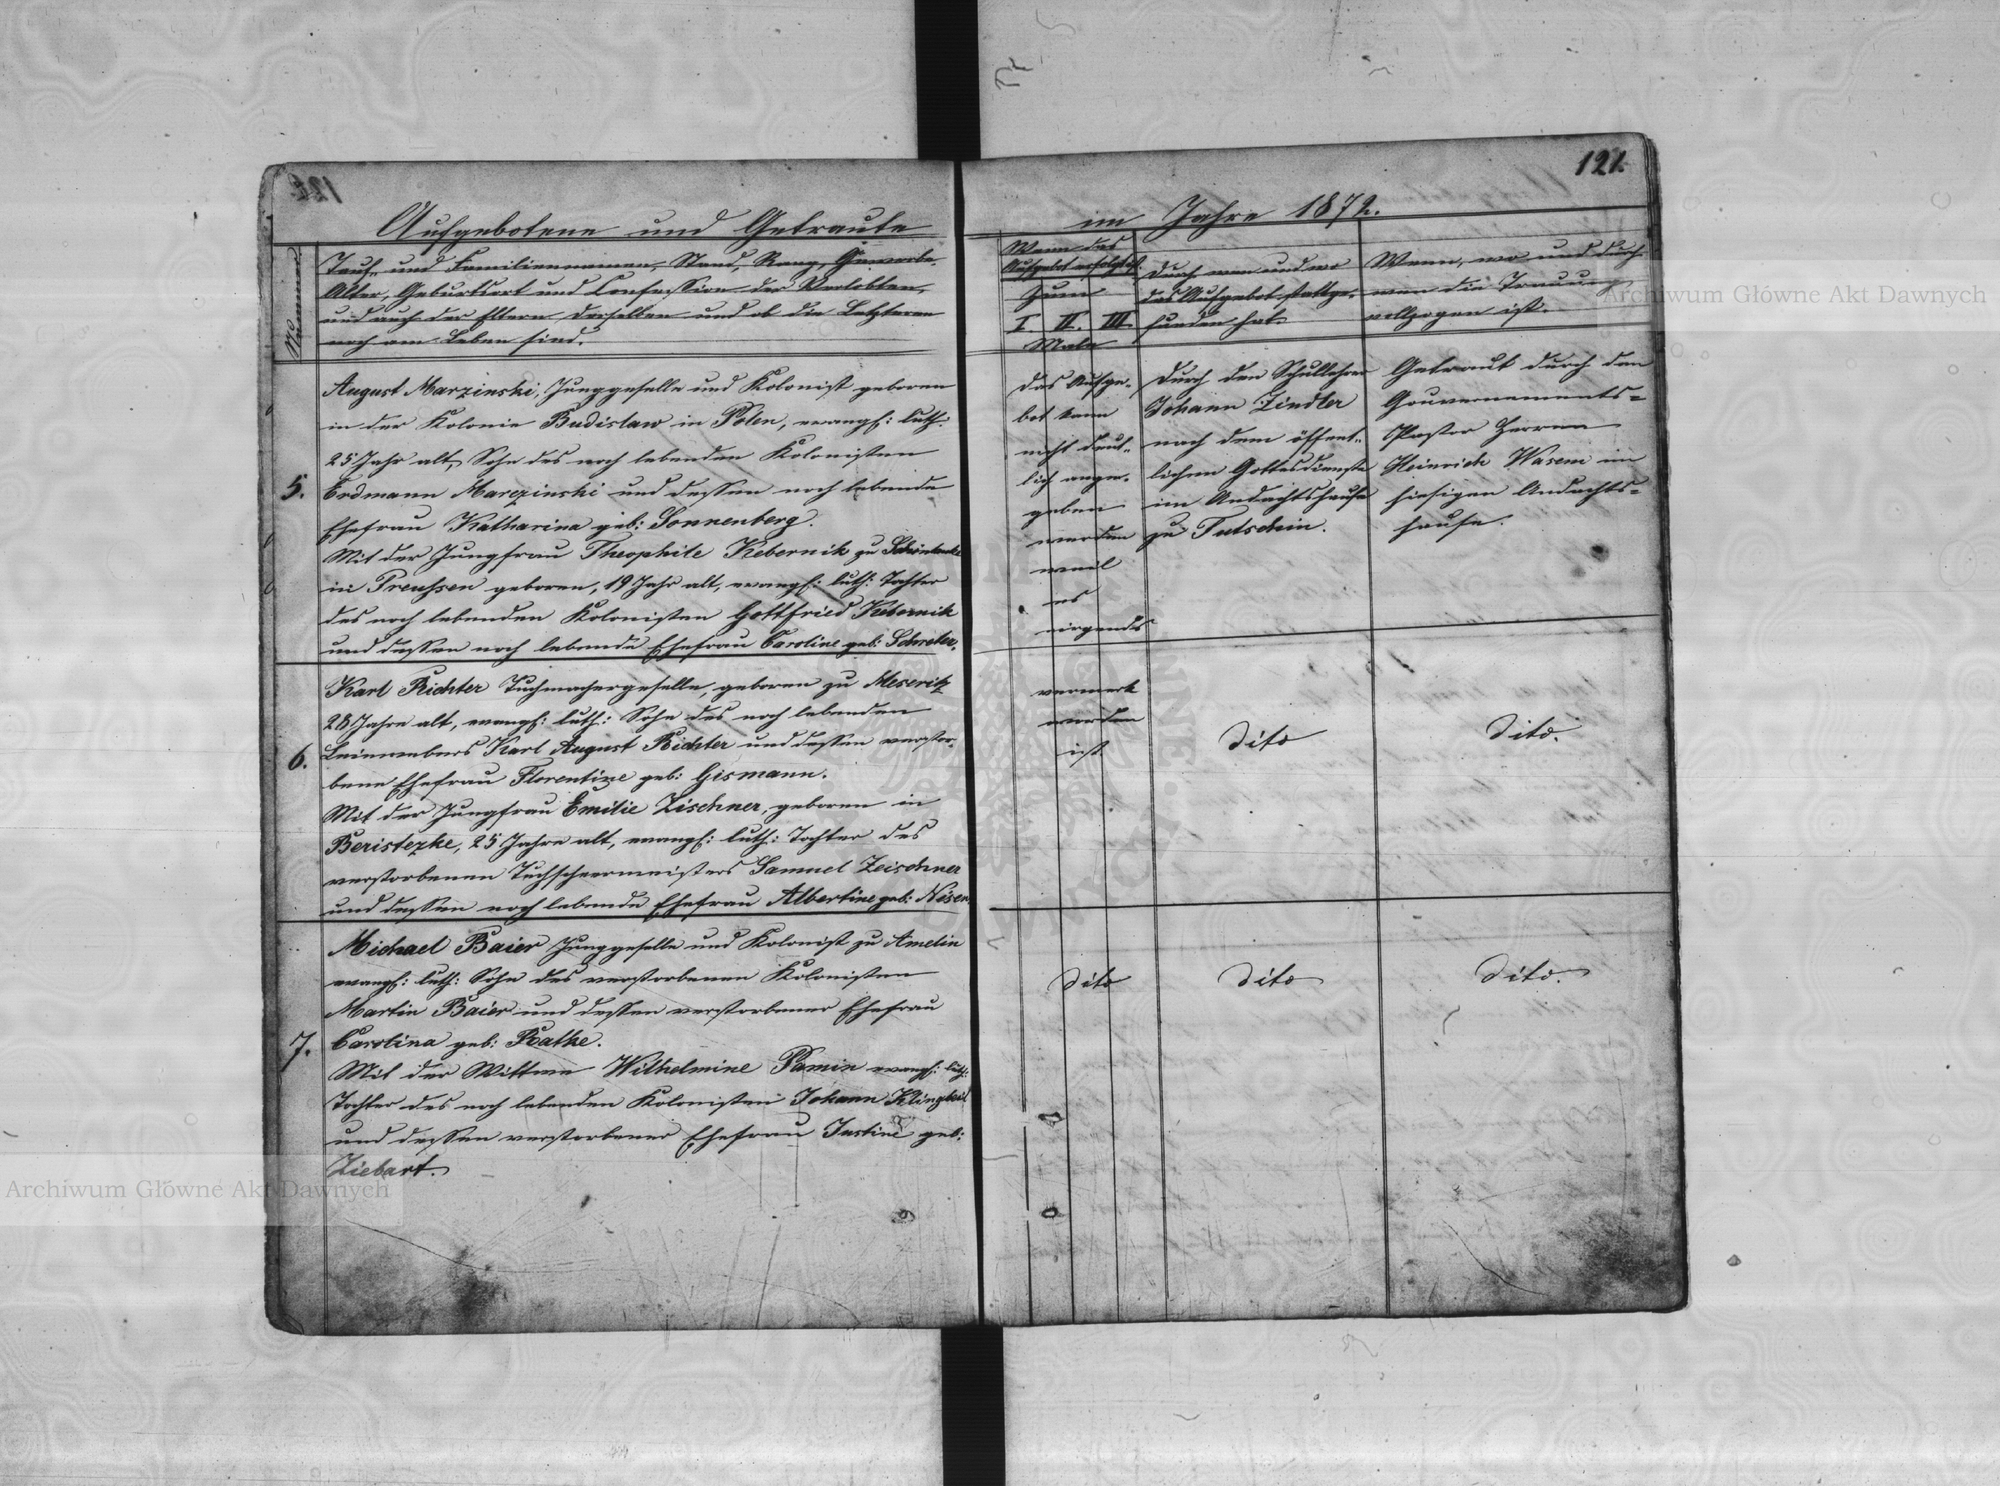 121.
Aufgebotene und Getraute
im Jahre 1872.
Nummer
Tauf- und Familiennamen, Stand, Rang, Gewerbe,
Alter, Geburtsort und Confession der Verlobten,
und auch der Eltern derselben und ob die Letzteren
noch am Leben sind.
Wann das
Aufgebot erfolgt ist.
Zum
I. II. III.
Male
Durch wen und wo
das Aufgebot stattge-
funden hat.
Wann, wo und durch
wen die Trauung
vollzogen ist.
5.
August Marzinski, Junggeselle und Kolonist geboren
in der Kolonie Budislaw in Polen, evangl: luth:
25 Jahr alt, Sohn des noch lebenden Kolonisten
Erdmann Marczinski und dessen noch lebende
Ehefrau Katharina geb: Sonnenberg.
Mit der Jungfrau Theophile Kebernik zu
in Preußen geboren, 19 Jahr alt, evangl: luth: Tochter
des noch lebenden Kolonisten Gottfried Kebernik
und dessen noch lebende Ehefrau Caroline geb: Schreber.
Das Aufge-
bot kann
nicht deut-
lich ange-
geben
werden
weil
es
nirgends
vermerk
worden
ist
Durch den Schullehrer
Johann Zindler
nach dem öffent-
lichen Gottesdienste
im Andachtshause
zu Tutschin.
Getraut durch den
Gouvernements-
Pastor Herrn
Heinrich Wasem im
hiesigen Andachts-
hause.
6.
Karl Richter Tuchmachergeselle, geboren zu Meseritz
28 Jahre alt, evangl: luth: Sohn des noch lebenden
Leinewebers Karl August Richter und dessen verstor-
bene Ehefrau Florentine geb: Gismann.
Mit der Jungfrau Emilie Zischner, geboren in
Beristezke, 25 Jahre alt, evangl: luth: Tochter des
verstorbenen Tuchscheermeisters Samuel Zeischner
und dessen noch lebende Ehefrau Albertine geb:
Dito
Dito.
7.
Michael Baier Junggeselle und Kolonist zu Amelin
evangl: luth: Sohn des verstorbenen Kolonisten
Martin Baier und dessen verstorbener Ehefrau
Carolina geb: Rathe.
Mit der Wittwe Wilhelmine Pamin evangl: luth:
Tochter des noch lebenden Kolonisten Johann Klingbeil
und dessen verstorbener Ehefrau Justine geb:
Ziebart.
Dito
Dito
Dito.
Archiwum Główne Akt Dawnych
Archiwum Główne Akt Dawnych